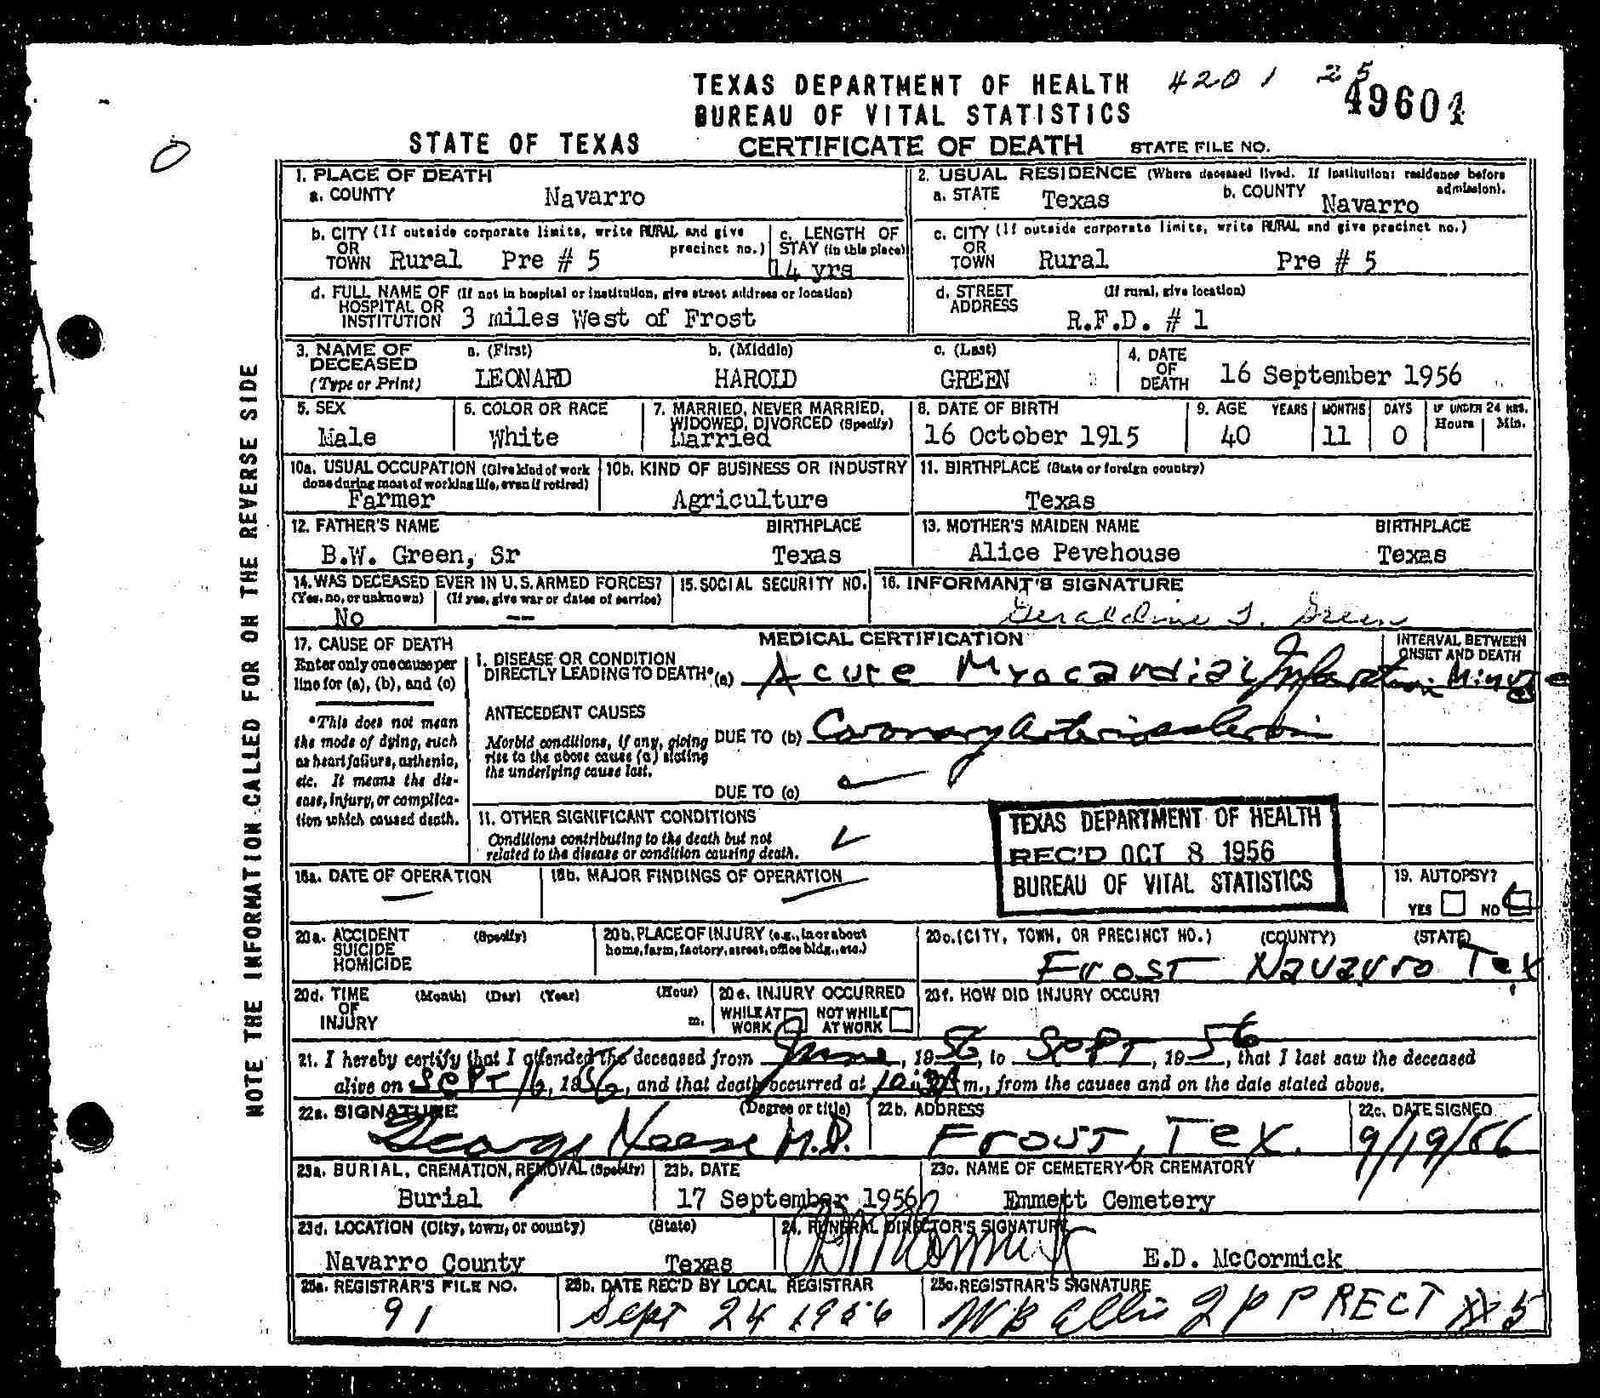 TEXAS DEPARTMENT OF HEALTH 4201 25
BUREAU OF VITAL STATISTICS 49604
STATE OF TEXAS CERTIFICATE OF DEATH STATE FILE NO.
0
NOTE THE INFORMATION CALLED FOR ON THE REVERSE SIDE
1. PLACE OF DEATH
a. COUNTY Navarro
2. USUAL RESIDENCE (Where deceased lived. If institution: residence before admission).
a. STATE Texas b. COUNTY Navarro
b. CITY (If outside corporate limits, write RURAL and give precinct no.)
OR TOWN Rural Pre # 5
c. LENGTH OF STAY (in this place) 14 yrs
c. CITY (If outside corporate limits, write RURAL and give precinct no.)
OR TOWN Rural Pre # 5
d. FULL NAME OF (If not in hospital or institution, give street address or location)
HOSPITAL OR INSTITUTION 3 miles West of Frost
d. STREET ADDRESS (If rural, give location)
R.F.D. # 1
3. NAME OF DECEASED (Type or Print)
a. (First) LEONARD
b. (Middle) HAROLD
c. (Last) GREEN
4. DATE OF DEATH 16 September 1956
5. SEX Male
6. COLOR OR RACE White
7. MARRIED, NEVER MARRIED, WIDOWED, DIVORCED (Specify) Married
8. DATE OF BIRTH 16 October 1915
9. AGE YEARS 40 MONTHS 11 DAYS 0 IF UNDER 24 HRS. Hours Min.
10a. USUAL OCCUPATION (Give kind of work done during most of working life, even if retired) Farmer
10b. KIND OF BUSINESS OR INDUSTRY Agriculture
11. BIRTHPLACE (State or foreign country) Texas
12. FATHER'S NAME BIRTHPLACE
B.W. Green, Sr Texas
13. MOTHER'S MAIDEN NAME BIRTHPLACE
Alice Pevehouse Texas
14. WAS DECEASED EVER IN U.S. ARMED FORCES?
(Yes, no, or unknown) (If yes, give war or dates of service)
No --
15. SOCIAL SECURITY NO.
16. INFORMANT'S SIGNATURE
Geraldine T. Green
17. CAUSE OF DEATH
Enter only one cause per line for (a), (b), and (c)
*This does not mean the mode of dying, such as heart failure, asthenia, etc. It means the disease, injury, or complication which caused death.
MEDICAL CERTIFICATION
INTERVAL BETWEEN ONSET AND DEATH
I. DISEASE OR CONDITION DIRECTLY LEADING TO DEATH* (a) Acute Myocardial Infarction Minutes
ANTECEDENT CAUSES
Morbid conditions, if any, giving rise to the above cause (a) stating the underlying cause last.
DUE TO (b) Coronary Arteriosclerosis
DUE TO (c)
11. OTHER SIGNIFICANT CONDITIONS
Conditions contributing to the death but not related to the disease or condition causing death.
TEXAS DEPARTMENT OF HEALTH
REC'D OCT 8 1956
BUREAU OF VITAL STATISTICS
18a. DATE OF OPERATION
18b. MAJOR FINDINGS OF OPERATION
19. AUTOPSY?
YES NO
20a. ACCIDENT SUICIDE HOMICIDE (Specify)
20b. PLACE OF INJURY (e.g., in or about home, farm, factory, street, office bldg., etc.)
20c. (CITY, TOWN, OR PRECINCT NO.) (COUNTY) (STATE)
Frost Navarro Tex
20d. TIME OF INJURY (Month) (Day) (Year) (Hour) m.
20e. INJURY OCCURRED
WHILE AT WORK NOT WHILE AT WORK
20f. HOW DID INJURY OCCUR?
21. I hereby certify that I attended the deceased from June, 1956, to Sept, 1956, that I last saw the deceased
alive on Sept 16, 1956, and that death occurred at 10:30A m., from the causes and on the date stated above.
22a. SIGNATURE (Degree or title)
George Neese M.D.
22b. ADDRESS
Frost, Tex.
22c. DATE SIGNED
9/19/56
23a. BURIAL, CREMATION, REMOVAL (Specify)
Burial
23b. DATE
17 September 1956
23c. NAME OF CEMETERY OR CREMATORY
Emmett Cemetery
23d. LOCATION (City, town, or county) (State)
Navarro County Texas
24. FUNERAL DIRECTOR'S SIGNATURE
McCormick E.D. McCormick
25a. REGISTRAR'S FILE NO.
91
25b. DATE REC'D BY LOCAL REGISTRAR
Sept 24 1956
25c. REGISTRAR'S SIGNATURE
W B Ellis J P PRECT 5